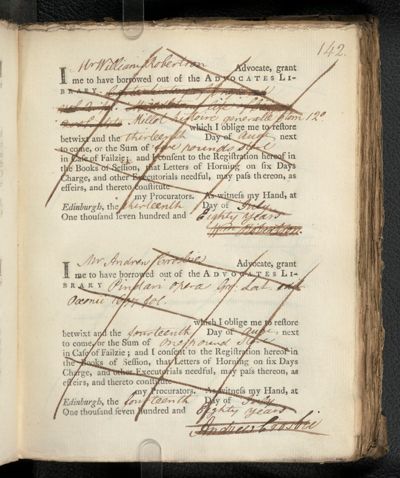 142.
I Mr William Robertson Advocate, grant
me to have borrowed out of the ADVOCATES LI-
BRARY
Millot histoire generale tom 12°
which I oblige me to restore
betwixt and the thirteenth Day of Augt. next
to come, or the Sum of five pounds Ster
in Case of Failzie; and I consent to the Registration hereof in
the Books of Session, that Letters of Horning on six Days
Charge, and other Executorials needful, may pass thereon, as
effeirs, and thereto constitute
my Procurators. As witness my Hand, at
Edinburgh, the thirteenth Day of July
One thousand seven hundred and Eighty years
Wm Robertson
I Mr Andrew Advocate, grant
me to have borrowed out of the ADVOCATES LI-
BRARY Pindari opera Gr. Lat.
Oxonii 1697 fol.
which I oblige me to restore
betwixt and the fourteenth Day of Augt. next
to come, or the Sum of one pound Ster
in Case of Failzie; and I consent to the Registration hereof in
the Books of Session, that Letters of Horning on six Days
Charge, and other Executorials needful, may pass thereon, as
effeirs, and thereto constitute
my Procurators. As witness my Hand, at
Edinburgh, the fourteenth Day of July
One thousand seven hundred and Eighty years
Andrew